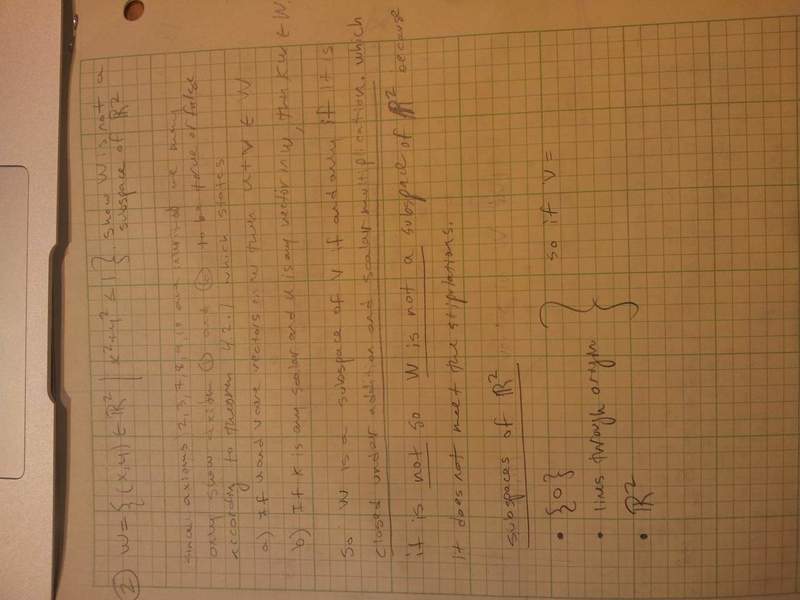 ② W = {(x,y) ∈ ℝ² | x²+y² ≤ 1} show W is not a
subspace of ℝ²
since axioms 2,3,7,8,9,10 are we may
only show axiom ① and ⑥ to be true or false
according to theorem 4.2.1 which states
a) If u and v are vectors in W then u+v ∈ W
b) If K is any scalar and u is any vector in W, then Ku ∈ W,
So W is a subspace of V if and only if it is
closed under addition and scalar multiplication. which
it is not so W is not a subspace of ℝ² because
it does not meet the stipulations.
subspaces of ℝ²
• {0}
• lines through origin
• ℝ²
so if v =